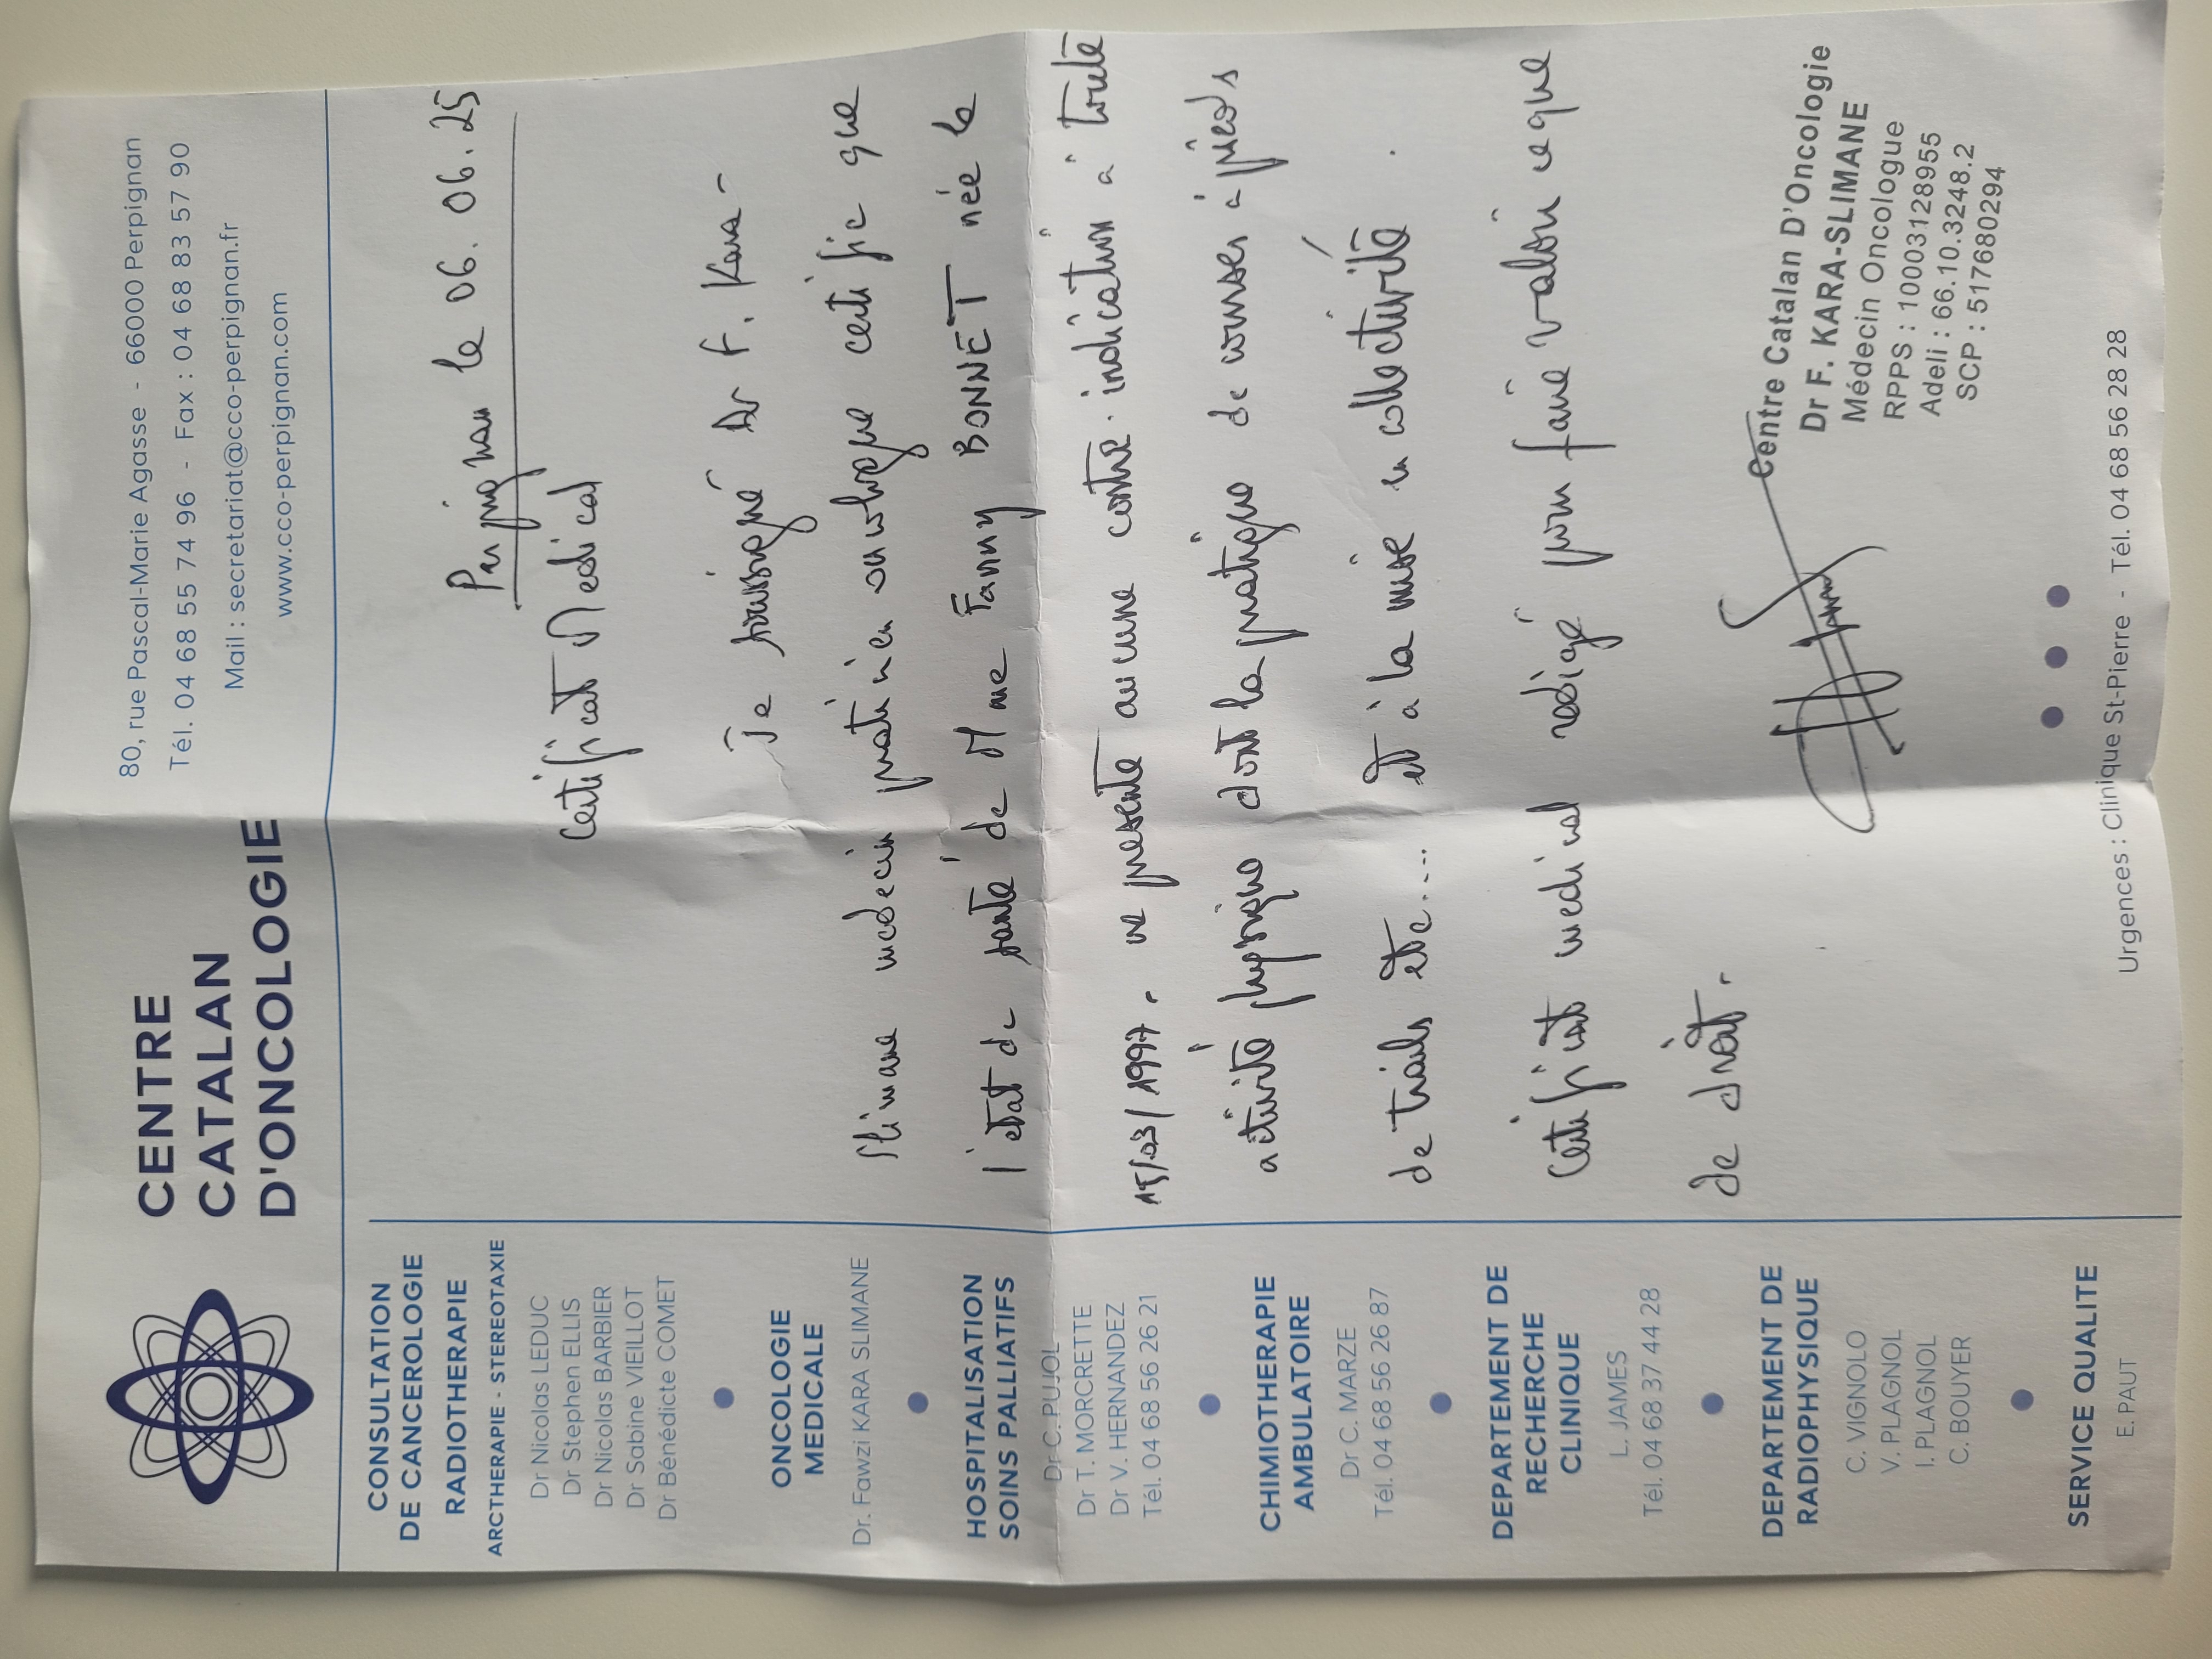 CENTRE
CATALAN
D'ONCOLOGIE
80, rue Pascal-Marie Agasse - 66000 Perpignan
Tél. 04 68 55 74 96 - Fax : 04 68 83 57 90
Mail : secretariat@cco-perpignan.fr
www.cco-perpignan.com
CONSULTATION
DE CANCEROLOGIE
RADIOTHERAPIE
ARCTHERAPIE - STEREOTAXIE
Dr Nicolas LEDUC
Dr Stephen ELLIS
Dr Nicolas BARBIER
Dr Sabine VIEILLOT
Dr Bénédicte COMET
ONCOLOGIE
MEDICALE
Dr. Fawzi KARA SLIMANE
HOSPITALISATION
SOINS PALLIATIFS
Dr C. PUJOL
Dr T. MORCRETTE
Dr V. HERNANDEZ
Tél. 04 68 56 26 21
CHIMIOTHERAPIE
AMBULATOIRE
Dr C. MARZE
Tél. 04 68 56 26 87
DEPARTEMENT DE
RECHERCHE
CLINIQUE
L. JAMES
Tél. 04 68 37 44 28
DEPARTEMENT DE
RADIOPHYSIQUE
C. VIGNOLO
V. PLAGNOL
I. PLAGNOL
C. BOUYER
SERVICE QUALITE
E. PAUT
Perpignan le 06.06.25
Certificat Medical
Je soussigné Dr F. Kara-
Slimane medecin praticien oncologue certifie que
l'etat de santé de Mme Fanny BONNET née le
15/03/1997. ne presente aucune contre-indication à toute
activité physique dont la pratique de courses à pieds
de trails etc.... et à la mise en collectivité.
Certificat medical redigé pour faire valoir ce que
de droit.
Centre Catalan D'Oncologie
Dr F. KARA-SLIMANE
Médecin Oncologue
RPPS : 10003128955
Adeli : 66.10.3248.2
SCP : 517680294
Urgences : Clinique St-Pierre - Tél. 04 68 56 28 28